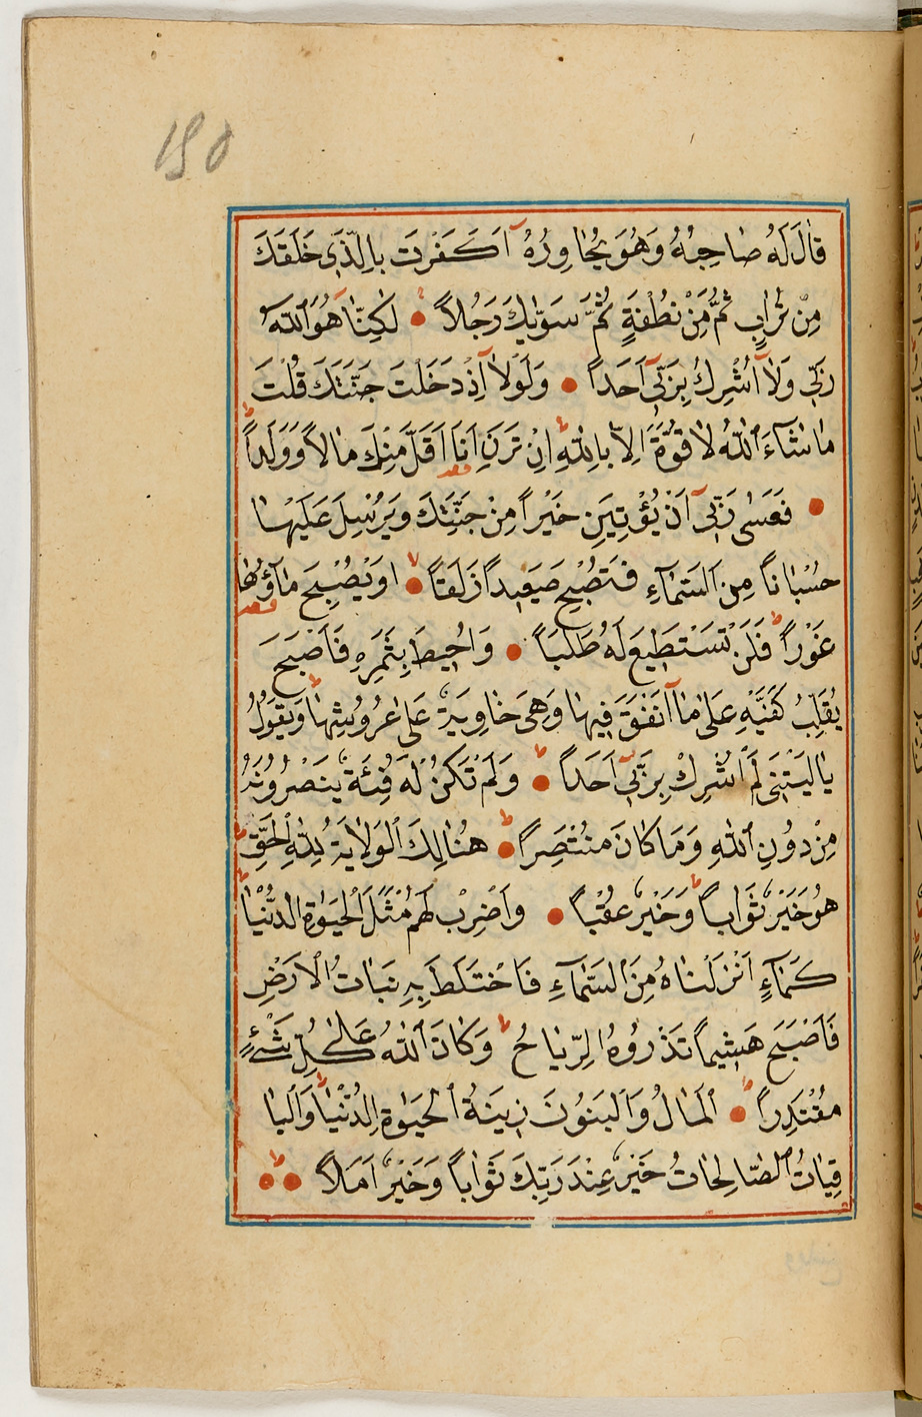 ١٥٠
قَالَ لَهُ صَاحِبُهُ وَهُوَ يُحَاوِرُهُ اَكَفَرْتَ بِالَّذٖي خَلَقَكَ
مِنْ تُرَابٍ ثُمَّ مِنْ نُطْفَةٍ ثُمَّ سَوّٰيكَ رَجُلاً لٰكِنَّا هُوَ اللّٰهُ
رَبّٖي وَلَا اُشْرِكُ بِرَبّٖي اَحَداً وَلَوْلَا اِذْ دَخَلْتَ جَنَّتَكَ قُلْتَ
مَا شَاءَ اللّٰهُ لَا قُوَّةَ اِلَّا بِاللّٰهِ اِنْ تَرَنِ اَنَا اَقَلَّ مِنْكَ مَالاً وَوَلَداً
فَعَسٰى رَبّٖي اَنْ يُؤْتِيَنِ خَيْراً مِنْ جَنَّتِكَ وَيُرْسِلَ عَلَيْهَا
حُسْبَاناً مِنَ السَّمَاءِ فَتُصْبِحَ صَعٖيداً زَلَقاً اَوْ يُصْبِحَ مَاؤُهَا
غَوْراً فَلَنْ تَسْتَطٖيعَ لَهُ طَلَباً وَاُحٖيطَ بِثَمَرِهٖ فَاَصْبَحَ
يُقَلِّبُ كَفَّيْهِ عَلٰى مَا اَنْفَقَ فٖيهَا وَهِيَ خَاوِيَةٌ عَلٰى عُرُوشِهَا وَيَقُولُ
يَا لَيْتَنٖي لَمْ اُشْرِكْ بِرَبّٖي اَحَداً وَلَمْ تَكُنْ لَهُ فِئَةٌ يَنْصُرُونَهُ
مِنْ دُونِ اللّٰهِ وَمَا كَانَ مُنْتَصِراً هُنَالِكَ الْوَلَايَةُ لِلّٰهِ الْحَقِّ
هُوَ خَيْرٌ ثَوَاباً وَخَيْرٌ عُقْباً وَاضْرِبْ لَهُمْ مَثَلَ الْحَيٰوةِ الدُّنْيَا
كَمَاءٍ اَنْزَلْنَاهُ مِنَ السَّمَاءِ فَاخْتَلَطَ بِهٖ نَبَاتُ الْاَرْضِ
فَاَصْبَحَ هَشٖيماً تَذْرُوهُ الرِّيَاحُ وَكَانَ اللّٰهُ عَلٰى كُلِّ شَيْءٍ
مُقْتَدِراً اَلْمَالُ وَالْبَنُونَ زٖينَةُ الْحَيٰوةِ الدُّنْيَا وَالْبَا
قِيَاتُ الصَّالِحَاتُ خَيْرٌ عِنْدَ رَبِّكَ ثَوَاباً وَخَيْرٌ اَمَلاً